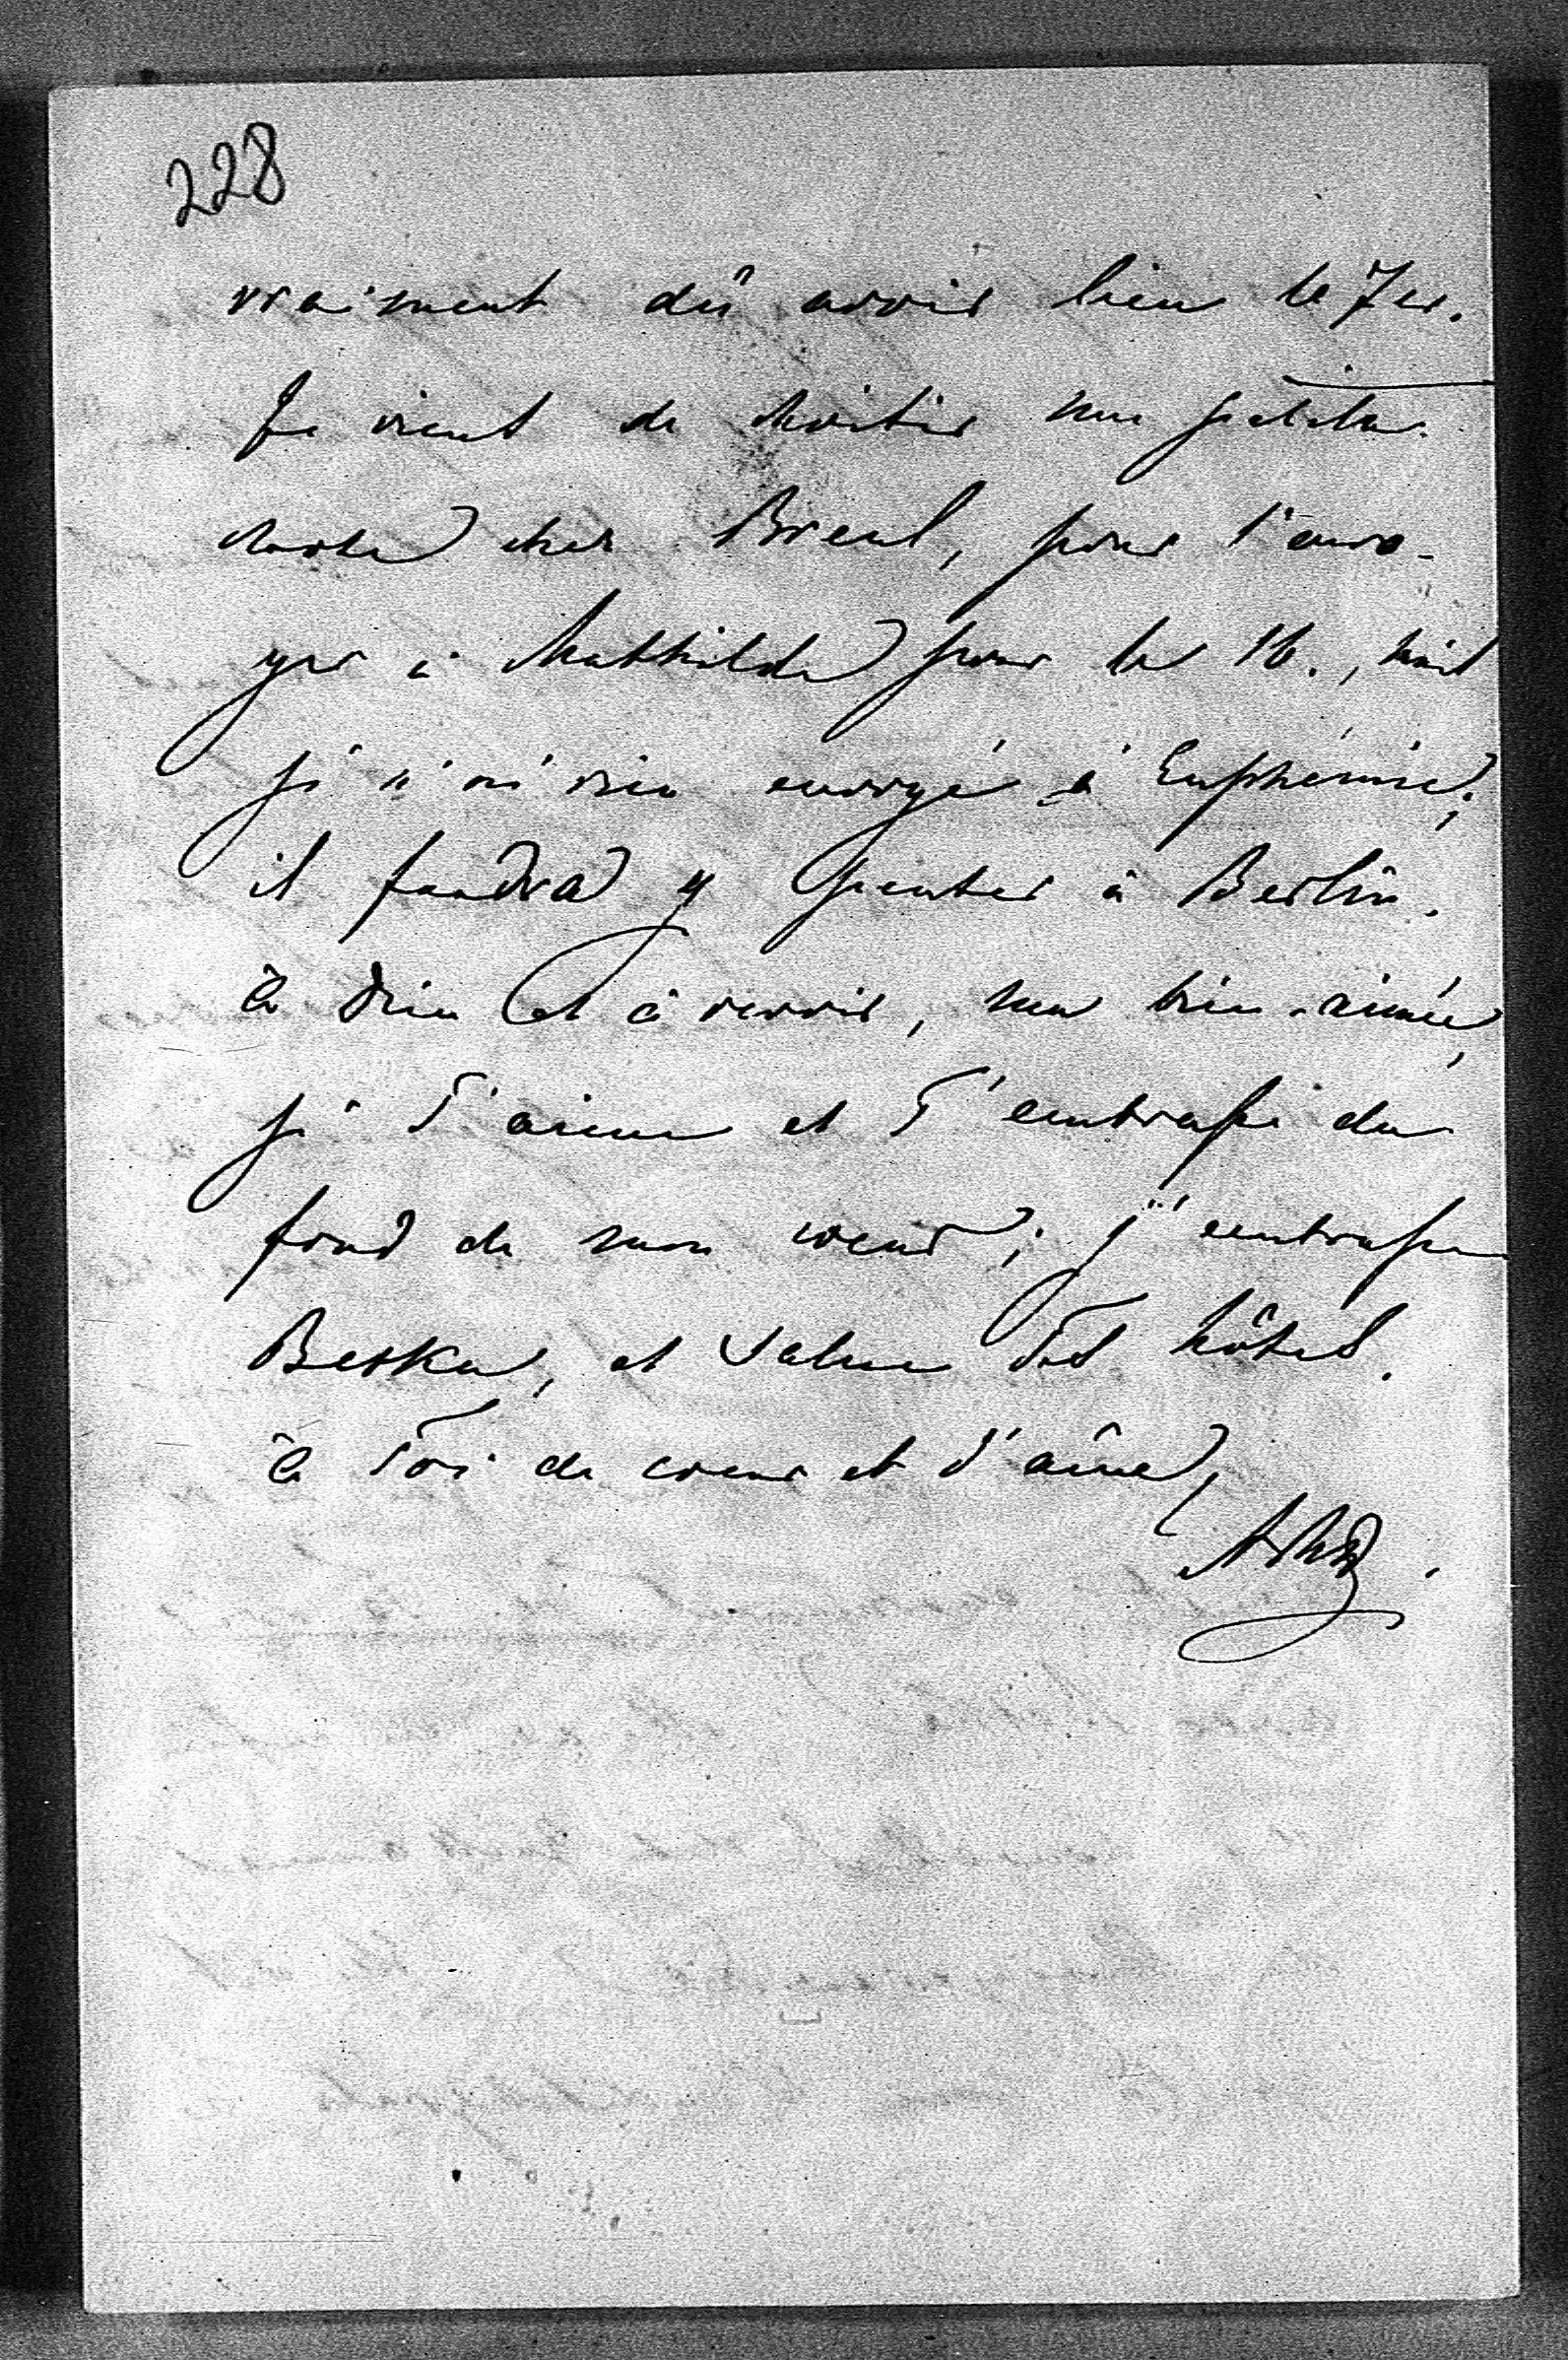 228
vraiment dû avoir lieu le 7 cr.
Je vient de choisir une petite
chose chez Breul, pour l'envo-
yer à Mathilde pour le 16., mais
je n'ai rien envoyé à Euphémie;
il faudra y penser à Berlin.
à Dieu et à revoir, ma bien-aimée,
je T'aime et T'embrasse du
fond de mon coeur; j'embrasse
Berka, et salue Tes hôtes.
à Toi de coeur et d'âme,